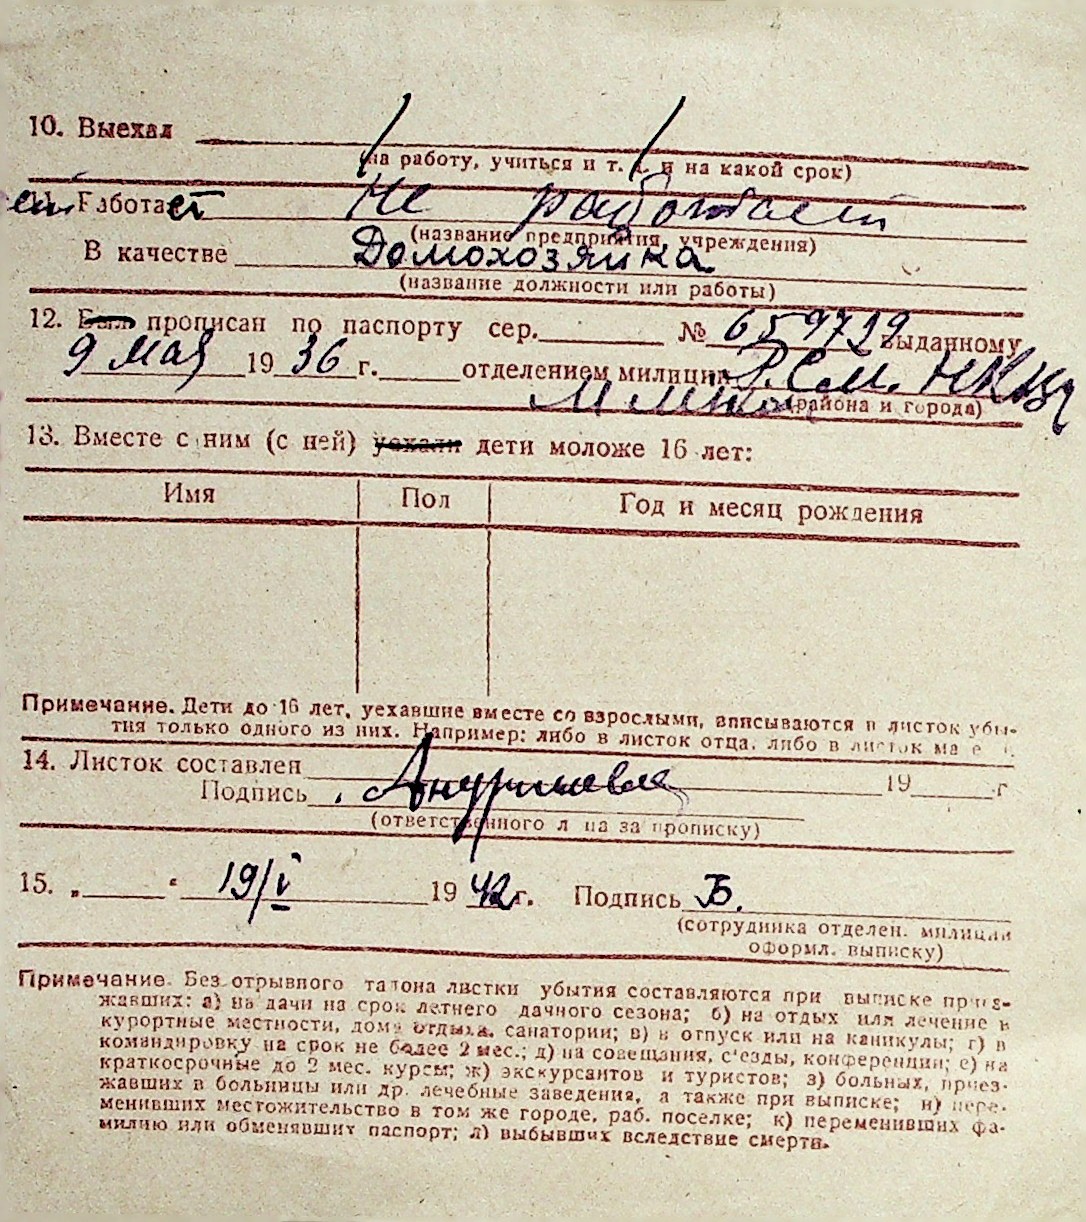 10. Выехал
(на работу, учиться и т. д. и на какой срок)
11. Работает не работает
(название предприятия, учреждения)
В качестве Домохозяйка
(название должности или работы)
12. Был прописан по паспорту сер. № 659729 выданному
9 мая 1936 г. отделением милиции Р.С.М. НКВД
(района и города)
13. Вместе с ним (с ней) уехали дети моложе 16 лет:
Имя Пол Год и месяц рождения
Примечание. Дети до 16 лет, уехавшие вместе со взрослыми, вписываются в листок убы-
тия только одного из них. Например: либо в листок отца, либо в листок матери.
14. Листок составлен 19 г
Подпись
(ответственного лица за прописку)
15. „ “ 19/V 1942 г. Подпись Б.
(сотрудника отделен. милиции
оформл. выписку)
Примечание. Без отрывного талона листки убытия составляются при выписке приез-
жавших: а) на дачи на срок летнего дачного сезона; б) на отдых или лечение в
курортные местности, дома отдыха, санатории; в) в отпуск или на каникулы; г) в
командировку на срок не более 2 мес.; д) на совещания, с'езды, конференции; е) на
краткосрочные до 2 мес. курсы; ж) экскурсантов и туристов; з) больных, приез-
жавших в больницы или др. лечебные заведения, а также при выписке; и) пере-
менивших местожительство в том же городе, раб. поселке; к) переменивших фа-
милию или обменявших паспорт; л) выбывших вследствие смерти.